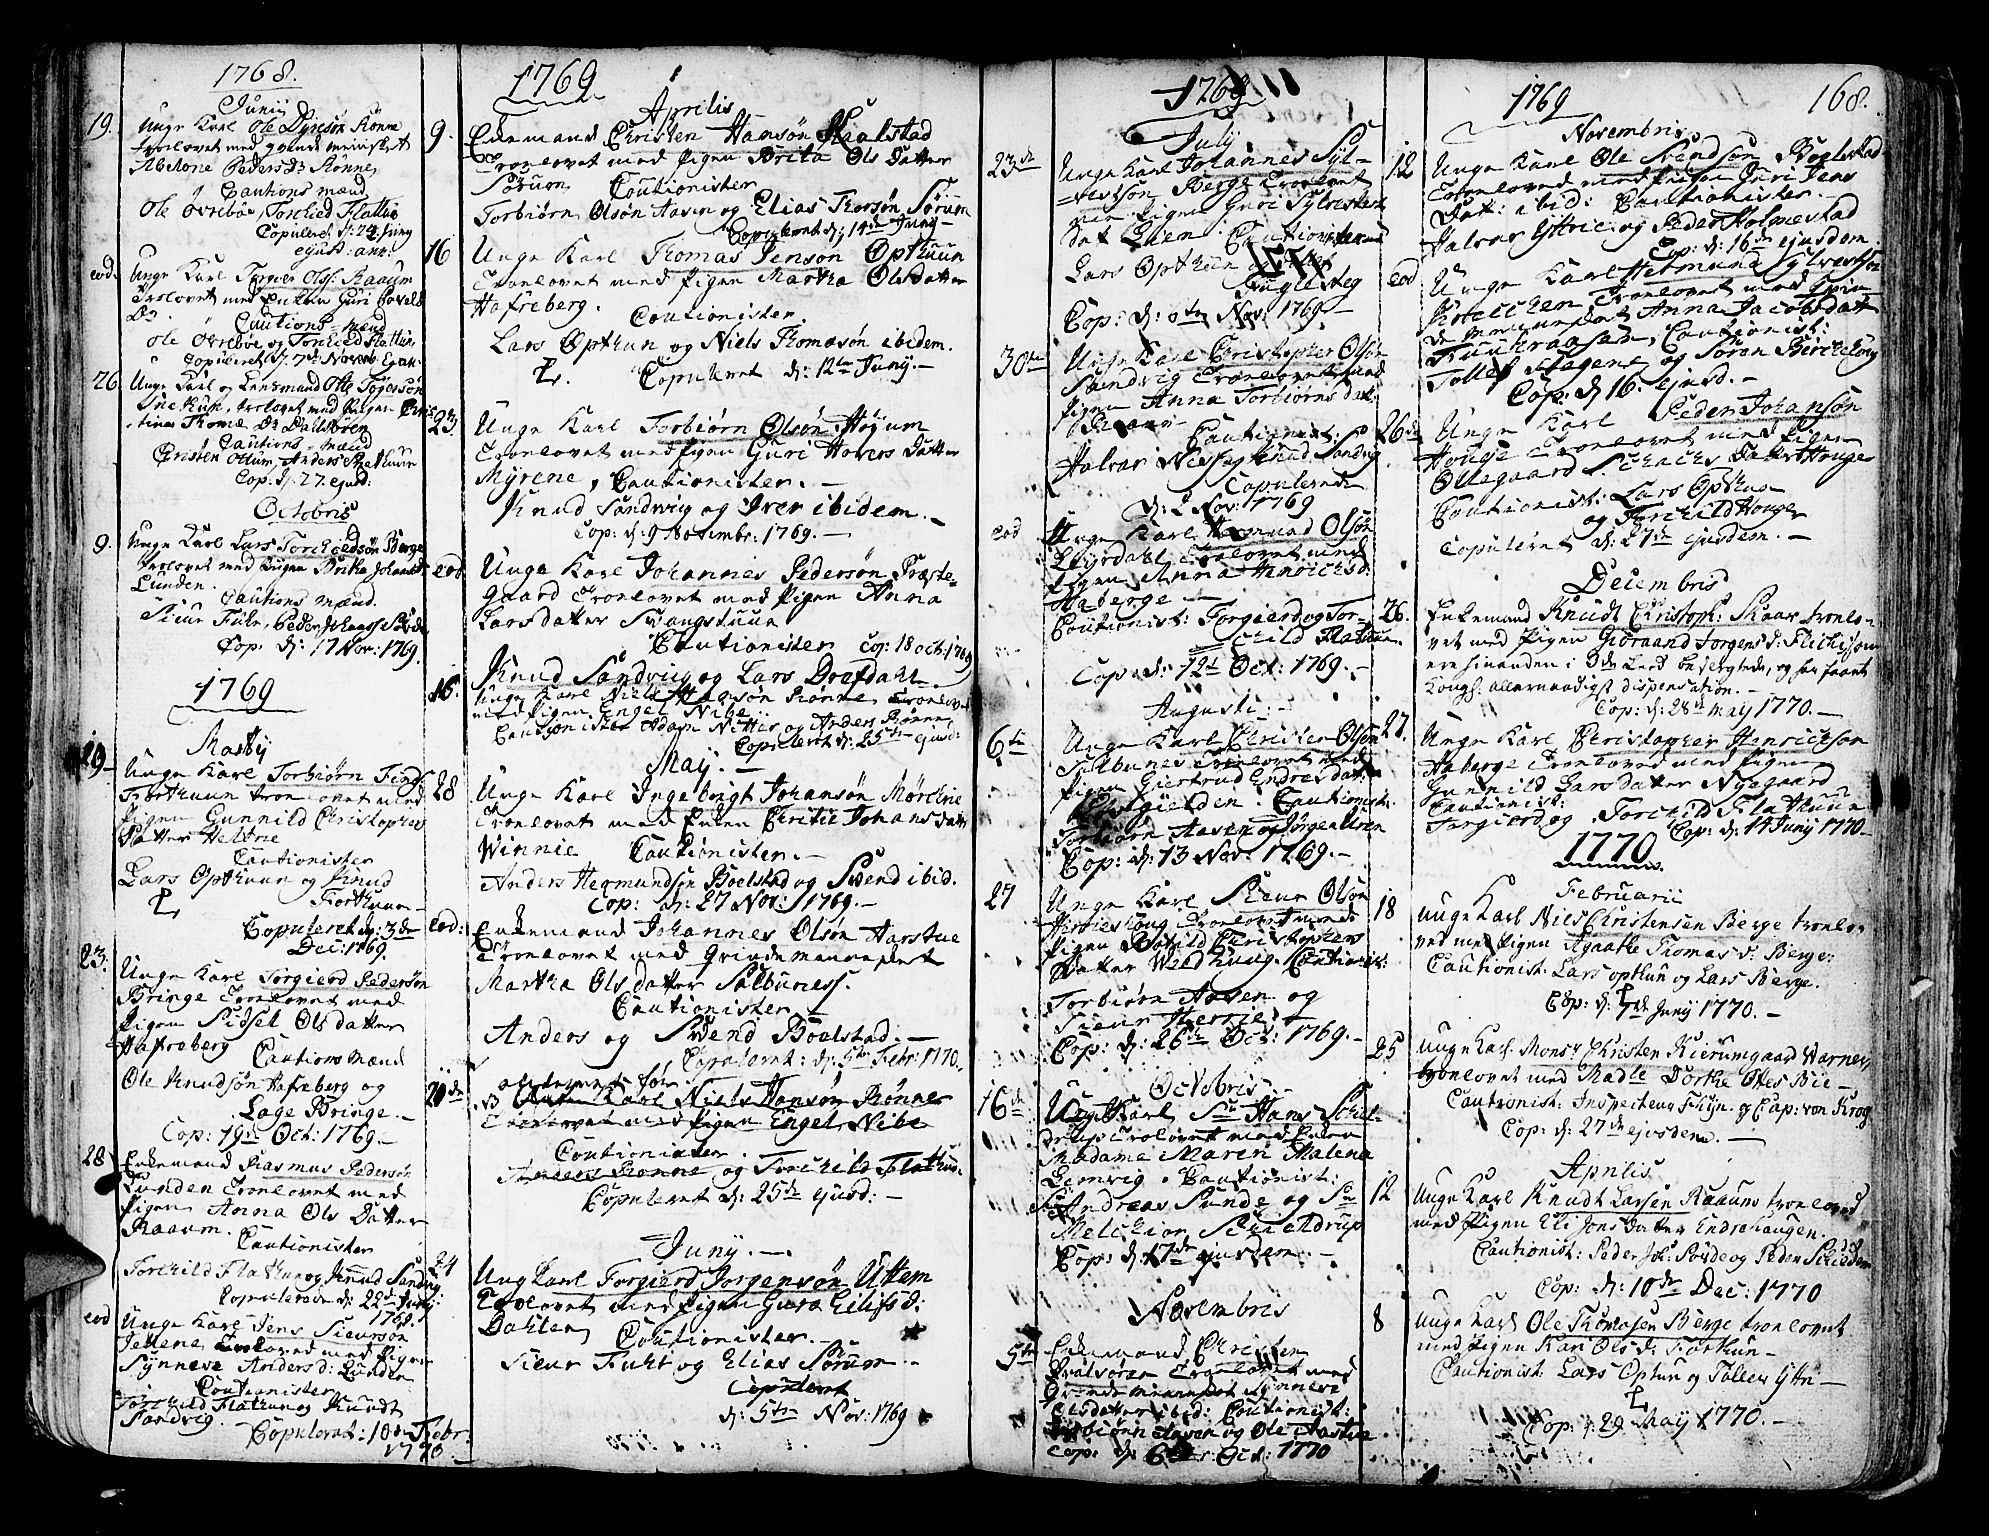 1768.
Junij
19. Unge Karl Ole Dyresøn Rønne
trolovet med qvinde mennisket
Abelone Peders Dr Rønne,
Cautions mænd
Ole Øvrebøe, Torchied Flatten
Copuleret d: 24 Juny
ejusd: ann:
eod. Unge Karl Torger Ols: Raaum
trolovet med Enken Guri
Dr. Cautions-mænd
Ole Øvrebøe og Torchied Flatten
Copuleret d. 7de Novemb
26. Unge Karl og Lensmand Ole Torgersøn
trolovet med Pigen
Thomæ Dr
Cautions-mænd
Christen Anders
Cop: d. 27. ejusd:
Octobris
9. Unge Karl Lars Torchildsøn Berge
trolovet med Pigen Brita Johans
Lunden.
Cautions mænd.
Sieur Peder Johans
Cop: d: 17 Nov: 1769.
1769
Martij
19 Unge Karl Torbiørn Finds
Forthuun troelovet med
Pigen Gunnild Christophers
Datter
Cautionister
Lars Opthuun og Knud
Forthuun
Copuleret d: 3de
Dec: 1769.
23. Unge Karl Torgierd Pedersøn
Bringe Troelovet med
Pigen Sidsel Ols datter
Hafreberg Cautions Mænd
Ole Knudsøn Hafreberg og
Lage Bringe.
Cop: 19de Oct: 1769.
28 Enkemand Rasmus Pedersøn
Lunden Troelovet med
Pigen Anna Ols Datter
Raaum.
Cautionister
Torchild Flathun og Knud Sandvig
Copuleret d: 22de Juny:
1769.
eod Unge Karl Jens Sieursøn
Troeloved med Pigen
Synneve Anders d: Lunden
Cautionister
Torchild Flathun og Knudt
Sandvig.
Copuleret: 10de Febr.
1770.
1769
Aprilis
9. Enkemand Christen Hansøn Kialstad
Troelovet med Pigen Brita Ols Datter
Sørum Cautionister
Torbiørn Olsøn Aasen og Elias Thorsøn Sørum
Copuleret d: 14de Juny
16 Unge Karl Thomas Jensøn Opthuun
Troelovet med Pigen Martha Olsdatter
Hafreberg. Cautionister.
Lars Opthun og Niels Thomasøn ibidem.
Copuleret d: 12te Juny.
23. Unge Karl Torbiørn Olsøn Høyum
Troelovet med Pigen Guri Halvors Datter
Myrene, Cautionister.
Knud Sandvig og Iver ibidem.
Cop: d: 9 Novembr: 1769.
eod. Unge Karl Johannes Pedersøn Præste-
gaard Troelovet med Pigen Anna
Larsdatter
Cautionister Cop: 18 oct: 1769
Knud Sandvig og Lars Døsdahl
16. Unge Karl Niels Hansøn Rønne Troelovet
med Pigen Engel Nibe
Cautionister Adam Nitter og Anders Rønne
Copuleret d: 25de ejusd:
May.
28 Unge Karl Ingebrigt Johansøn Mørchrie
Troelovet med Enken Christie Johans datter
Winnie Cautionister.
Anders Hermundsøn Boelstad og Svend ibid.
Cop: d: 27 Nov: 1769.
eod: Enkemand Johannes Olsøn Aarstue
Troelovet med Qvindemennesket
Martha Ols datter Salbuness.
Cautionister
Anders og Svend Boelstad.
Copuleret: d: 5te Febr: 1770.
20de Unge Karl Niels Hansøn Rønne
Troelovet med Pigen Engel Nibe
Cautionister.
Anders Rønne og Torchild Flathun.
Copuleret d: 25de ejusd:
Juny.
24 Ung Karl Torgierd Jorgensøn Uttem
Troelovet med Pigen Guro Eilifs d:
Dahlen Cautionister.
Sieur Fuht og Elias Sørum.
Copuleret
d: 5te Nov: 1769
1769
July
23de Unge Karl Johannes Syl-
vestsøn Berge Troelovet
med Pigen Guri Sylvesters
dat Cautionister
Lars Opthun
Fuglesteg
Cop: d: Nov: 1769.
30te Unge Karl Christopher Olsøn
Sandvig Troelovet med
Pigen Anna Torbiørns dat:
Cautionist:
Halvar og Knud Sandvig
Copulerede
d: 2 Nov: 1769
eod Unge Karl Hermund Olsøn
Troelovet med
Pigen Anna Henrichs d:
Haberge
Cautionist: Torgierd og Tor-
child Flathun
Cop: d: 12te Oct: 1769.
Augusti.
6te Unge Karl Christen Olsøn
Salbunes Troelovet med
Pigen Giertrud Endresdat:
Cautionist:
Torbiørn Aasen og Jørgen Uren
Cop: d: 13 Nov: 1769.
27 Unge Karl Sieur Olsøn
Troelovet med
Pigen Botild Christophers
Datter Cautionist:
Torbiørn Aasen og
Sieur
Cop: d: 26de Oct: 1769.
Octobris.
16de Ungkarl Sr Hans Schiel-
drup Troelovet med Enken
Madame Maren Malena
Lemvig. Cautionist:
Sr Andreas Sunde og Sr
Melchior Schieldrup
Cop: d: 17de ejusdem.
Novembris
5te Enkemand Christen
Troelovet med
Qvinde mennesket Synneve
Olsdatter ibid: Cautionist:
Torbiørn Aasen og Ole Aastue
Cop: d: 6 Oct: 1770
1769 168.
Novembris
12 Unge Karl Ole Svendsøn Boelstad
Troeloved med Pigen Guri Jens
Dat: ibid: Cautionister.
Halvar Yttrie og Peder Holmestad
Cop: d: 16de ejusdem
eod Unge Karl Hermund Sylvestsøn
Troelovet med
Anna Jacobsdatt
Cautionist:
Tollef Hagene og Søren
Cop: d 16. ejusd.
26de Unge Karl Peder Johansøn
Houge Troelovet med Pigen
Ollegaard Schachs Datter Houge
Cautionist: Lars Opthun
og Torchild Houge
Copuleret d: 27de ejusdem.
Decembris
26. Enkemand Knudt Christoph: Skaar troelo-
vet med Pigen Giøraand Jorgens d: som
ere hinanden i 3die Leed besvogrede, og har faaet
Kongl: allernaadigst dispensation.
Cop: d: 28de May 1770.
27. Unge Karl Christopher Henrichsøn
Haberge Troeloved med Pigen
Gunnild Larsdatter Nygaard
Cautionist:
Torgierd og Torchild Flathuun
Cop: d: 14 Junij 1770.
1770
Februarii
18 Unge Karl Niels Christensen Berge troelo-
vet med Pigen Agaathe Thomas d: Berge:
Cautionist. Lars opthun og Lars Berge.
Cop: d: 7de Junij 1770.
25 Unge Karl Monsr Christen Kierumgaard Warner,
troelovet med Madle Dorthe Otes Bie
Cautionist: Inspecteur og Cap: von Krog
Cop: d: 27de ejusdem.
Aprilis
12 Unge Karl Knudt Larsen Raaum troeloved
med Pigen Eli Jons datter Endrehaugen.
Cautionist: Peder Joh: Sovde og Peder
Cop: d: 10de Dec: 1770
8 Unge Karl Ole Thomasen Berge troelovet
med Pigen Kari Ols d: Forthun
Cautionist. Lars Optun og Tollev Ytri
Cop: d. 29 May 1770.